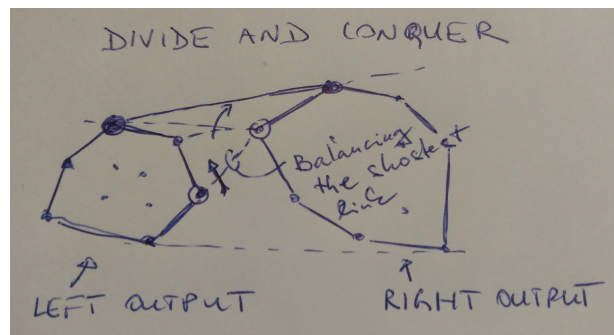 DIVIDE AND CONQUER
Balancing
the shortest
line
LEFT OUTPUT
RIGHT OUTPUT